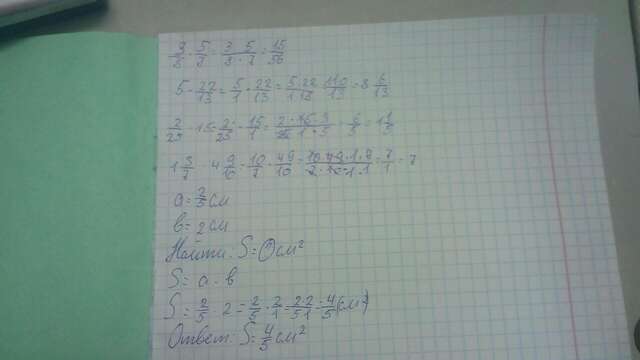 3/8 · 5/7 = 3 · 5 / 8 · 7 = 15/56
5 · 22/13 = 5/1 · 22/13 = 5·22 / 1·13 = 110/13 = 8 6/13
2/25 · 15 = 2/25 · 15/1 = 2 · 15 · 3 / 25 · 1 · 5 = 6/5 = 1 1/5
1 3/7 · 4 9/10 = 10/7 · 49/10 = 10·49·1·7 / 7·10·1·1 = 7/1 = 7
a = 2/5 см
b = 2 см
Найти: S = ? см²
S = a · b
S = 2/5 · 2 = 2/5 · 2/1 = 2·2 / 5·1 = 4/5 (см²)
Ответ: S = 4/5 см²